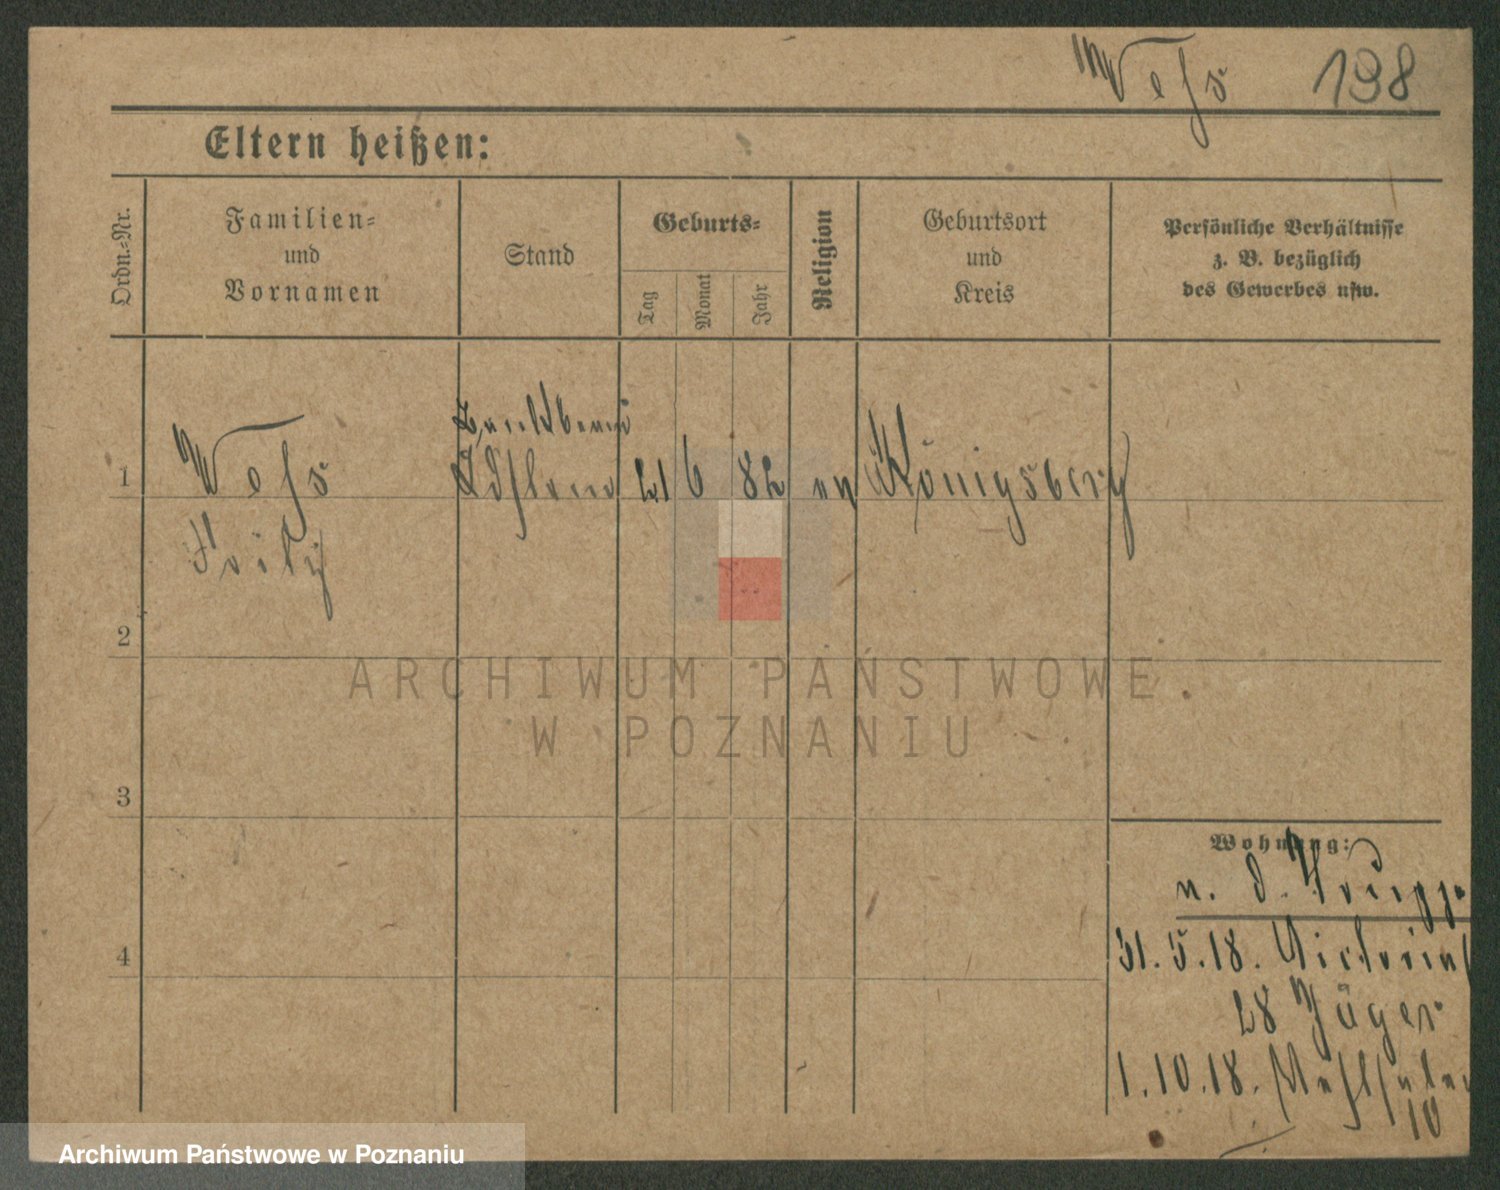 Wess 198
Eltern heißen:
Ordn.-Nr.
Familien-
und
Vornamen
Stand
Geburts-
Tag
Monat
Jahr
Religion
Geburtsort
und
Kreis
Persönliche Verhältnisse
z. B. bezüglich
des Gewerbes usw.
1 Wess 21 6 82 ev Königsberg
Fritz
2
ARCHIWUM PAŃSTWOWE
W POZNANIU
3
Wohnung:
n. d.
4
31. 5. 18.
28 Jäger
1. 10. 18.
10
Archiwum Państwowe w Poznaniu